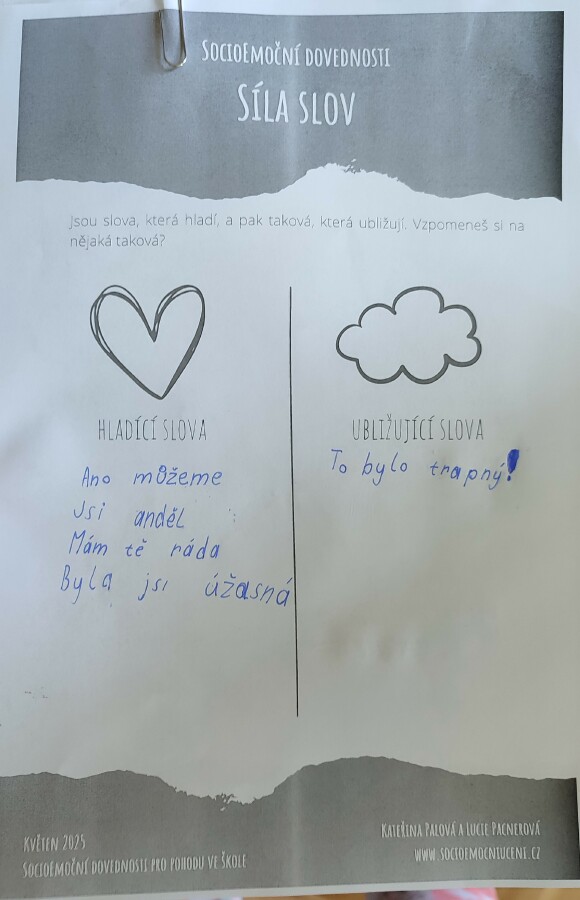 SOCIOEMOČNÍ DOVEDNOSTI
SÍLA SLOV
Jsou slova, která hladí, a pak taková, která ubližují. Vzpomeneš si na
nějaká taková?
HLADÍCÍ SLOVA
Ano můžeme
Jsi anděl
Mám tě ráda
Byla jsi úžasná
UBLIŽUJÍCÍ SLOVA
To bylo trapný!
KVĚTEN 2025
SOCIOEMOČNÍ DOVEDNOSTI PRO POHODU VE ŠKOLE
KATEŘINA PALOVÁ A LUCIE PACNEROVÁ
WWW.SOCIOEMOCNIUCENI.CZ